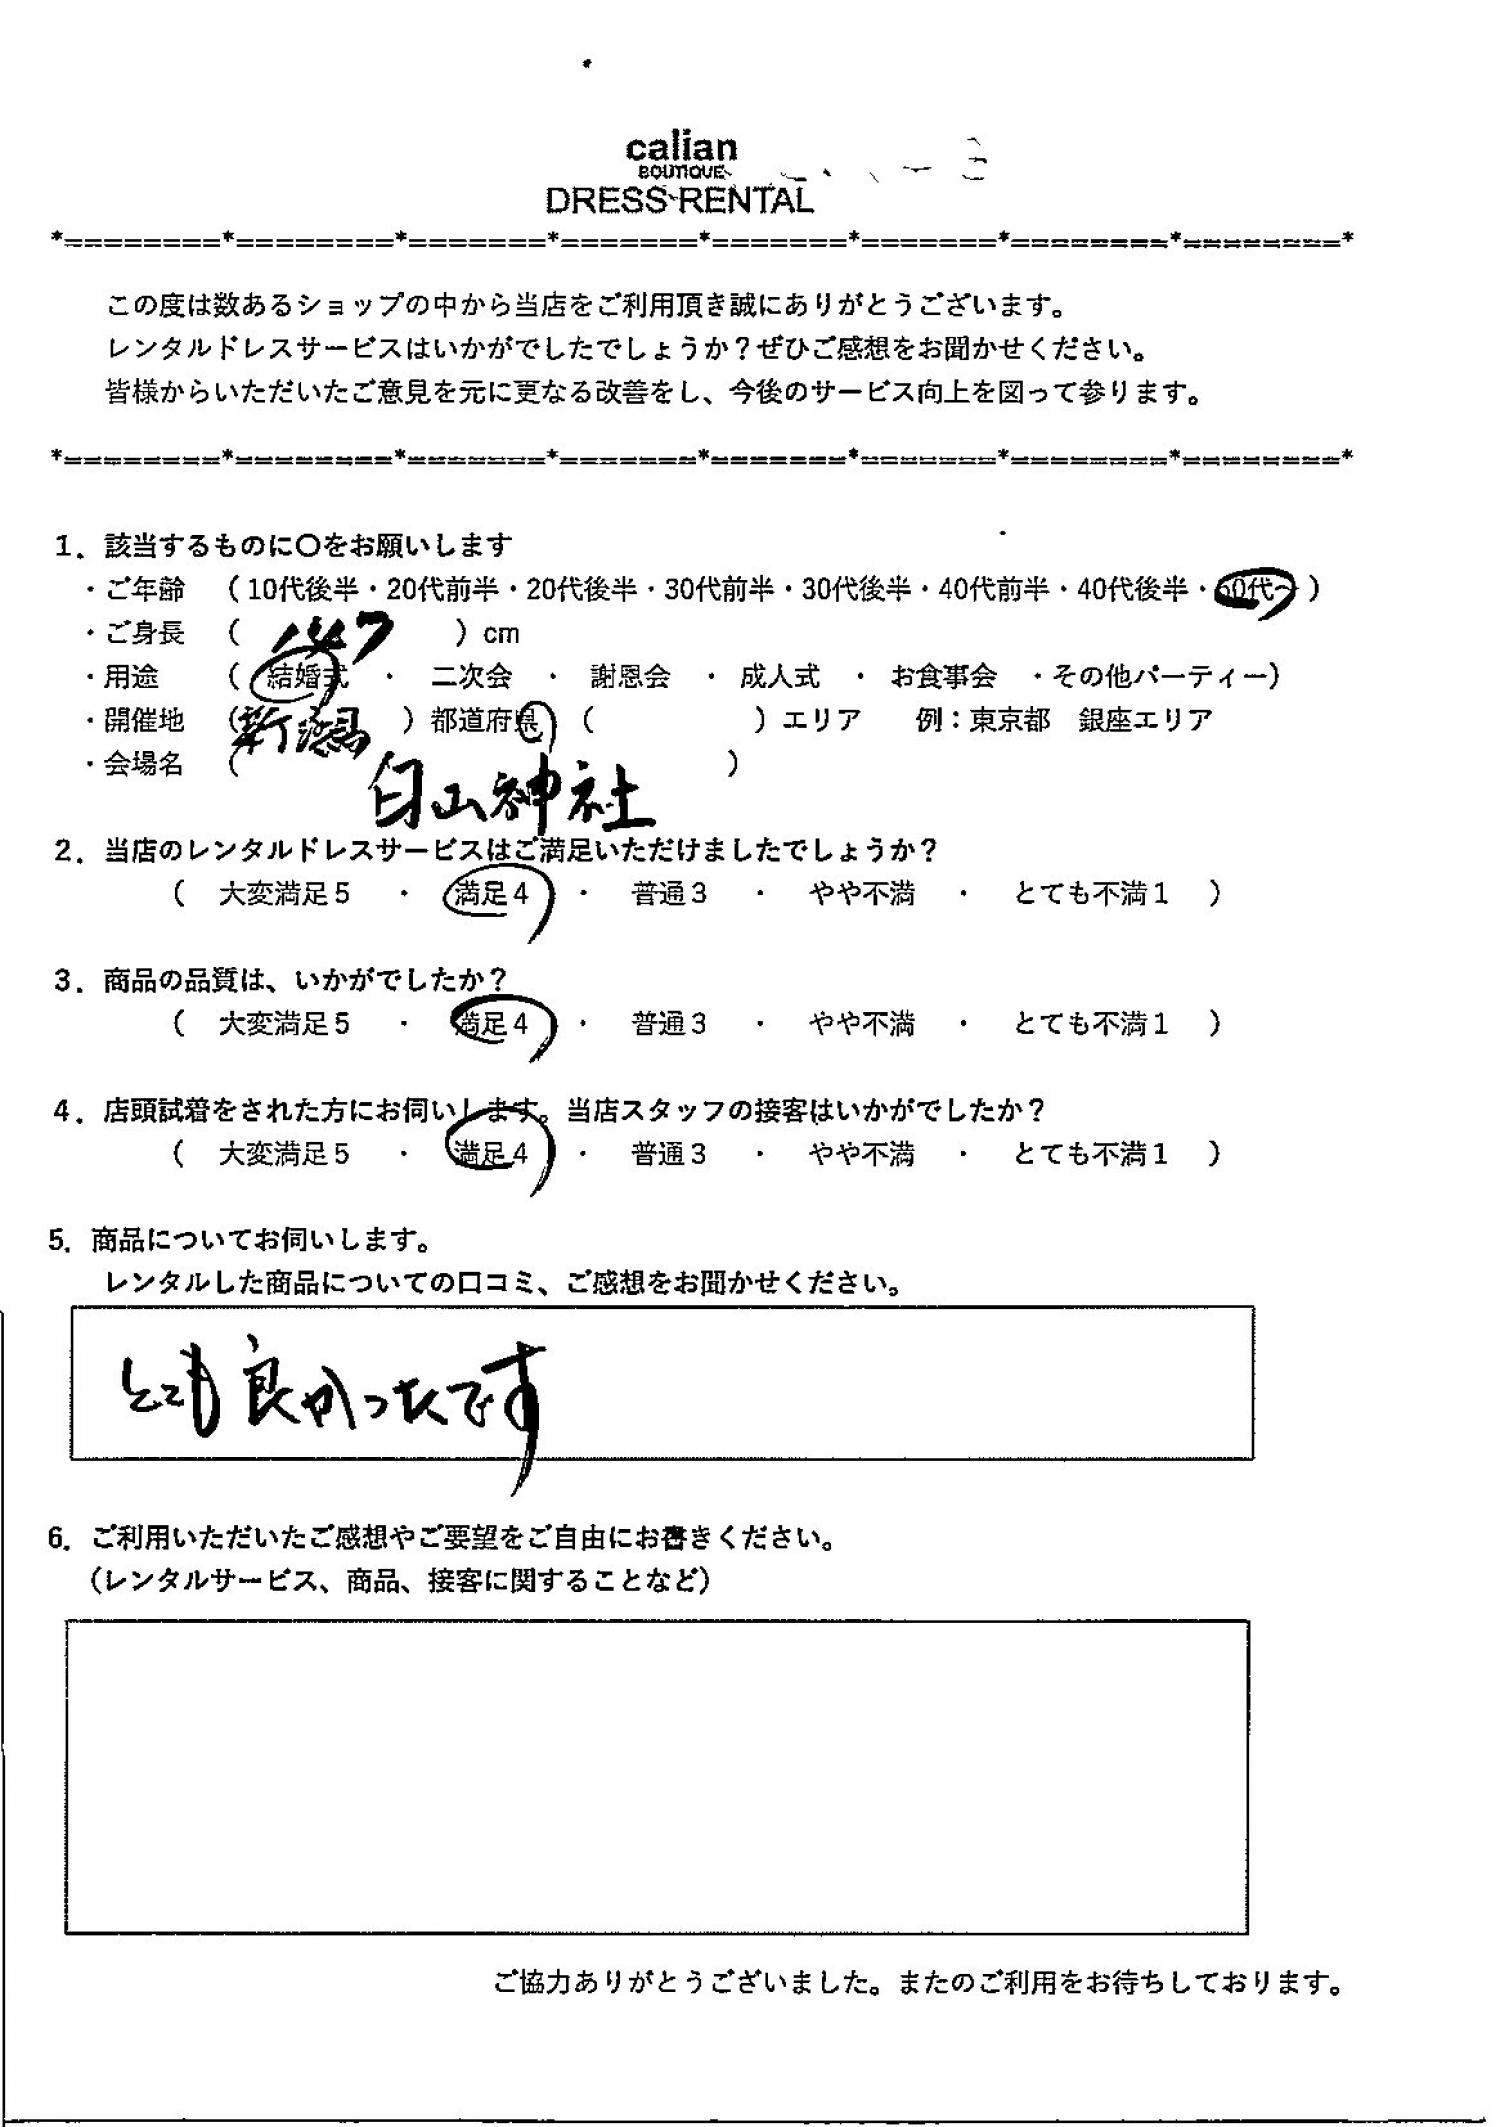 calian
BOUTIQUE
DRESS RENTAL
*========*========*=======*=======*=======*=======*========*========*
この度は数あるショップの中から当店をご利用頂き誠にありがとうございます。
レンタルドレスサービスはいかがでしたでしょうか?ぜひご感想をお聞かせください。
皆様からいただいたご意見を元に更なる改善をし、今後のサービス向上を図って参ります。
*========*========*=======*=======*=======*=======*========*========*
1. 該当するものに〇をお願いします
・ご年齢 (10代後半・20代前半・20代後半・30代前半・30代後半・40代前半・40代後半・50代~)
・ご身長 ( 147 ) cm
・用途 ( 結婚式 ・ 二次会 ・ 謝恩会 ・ 成人式 ・ お食事会 ・その他パーティー)
・開催地 (新潟 ) 都道府県 ( ) エリア 例:東京都 銀座エリア
・会場名 ( 白山神社 )
2. 当店のレンタルドレスサービスはご満足いただけましたでしょうか?
( 大変満足5 ・ 満足4 ・ 普通3 ・ やや不満 ・ とても不満1 )
3. 商品の品質は、いかがでしたか?
( 大変満足5 ・ 満足4 ・ 普通3 ・ やや不満 ・ とても不満1 )
4. 店頭試着をされた方にお伺いします。当店スタッフの接客はいかがでしたか?
( 大変満足5 ・ 満足4 ・ 普通3 ・ やや不満 ・ とても不満1 )
5. 商品についてお伺いします。
レンタルした商品についての口コミ、ご感想をお聞かせください。
とても良かったです
6. ご利用いただいたご感想やご要望をご自由にお書きください。
(レンタルサービス、商品、接客に関することなど)
ご協力ありがとうございました。またのご利用をお待ちしております。